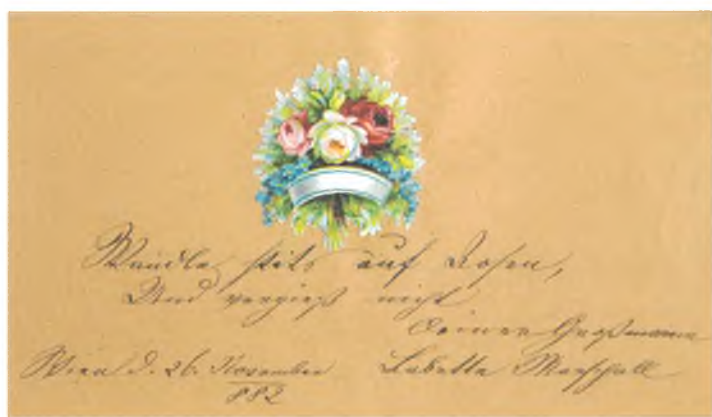 Wandle stets auf Rosen,
Und vergiß nicht
Deiner Großmama
Wien d. 26. November
882
Babetta Marschall